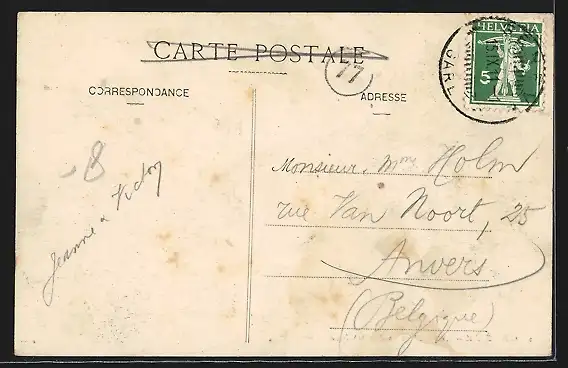 CARTE POSTALE
77
HELVETIA
5
GARE
CORRESPONDANCE
ADRESSE
8
Jeanne & Victor
Monsieur. Mme Holm
rue Van Noort, 25
Anvers
(Belgique)